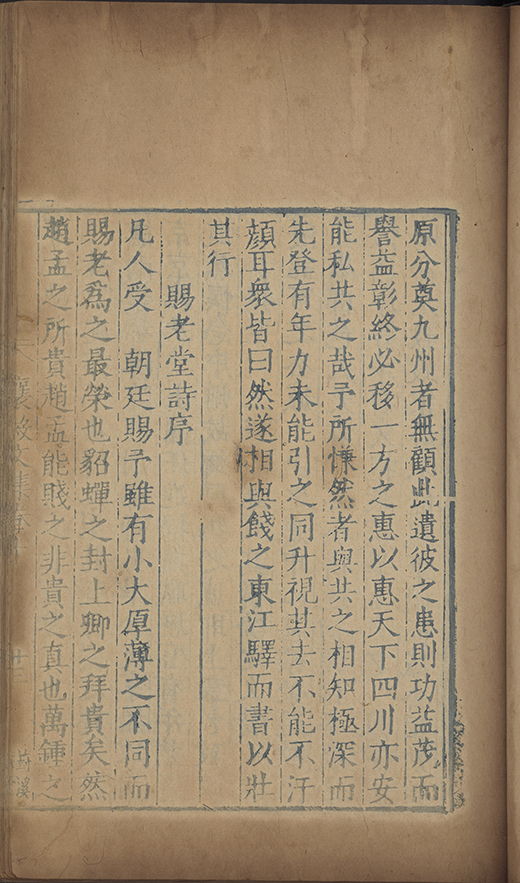 原分奠九州者無顧此遺彼之患則功益茂而
譽益彰終必移一方之惠以惠天下四川亦安
能私共之哉予所慊然者與共之相知極深而
先登有年力未能引之同升視其去不能不汗
顔耳衆皆曰然遂相與餞之東江驛而書以壯
其行
賜老堂詩序
凡人受 朝廷賜予雖有小大厚薄之不同而
賜老爲之最榮也貂蟬之封上卿之拜貴矣然
趙孟之所貴趙孟能賤之非貴之真也萬鍾之
襄毅文集卷
十三